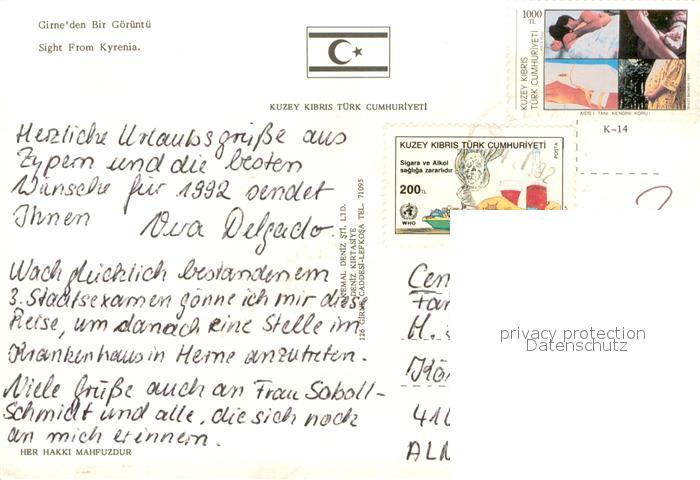 Girne'den Bir Görüntü
Sight From Kyrenia.
KUZEY KIBRIS TÜRK CUMHURİYETİ
1000
TL
KUZEY KIBRIS
TÜRK CUMHURİYETİ
AIDS'İ TANI, KENDİNİ KORU!
K-14
KUZEY KIBRIS TÜRK CUMHURİYETİ
Sigara ve Alkol
sağlığa zararlıdır
200TL
WHO
POSTA
92
Herzliche Urlaubsgrüße aus
Zypern und die besten
Wünsche für 1992 sendet
Ihnen Delgado.
Nach glücklich bestandenem
3. Staatsexamen gönne ich mir diese
Reise, um danach eine Stelle im
Krankenhaus in Herne anzutreten.
Viele Grüße auch an Frau Soboll-
Schmidt und alle, die sich noch
an mich erinnern.
HER HAKKI MAHFUZDUR
KEMAL DENİZ ŞTİ. LTD.
DENİZ KIRTASİYE
126 GİRNE CADDESİ-LEFKOŞA TEL. 71095
Cen
Fan
H.
Kö
416
ALM
privacy protection
Datenschutz